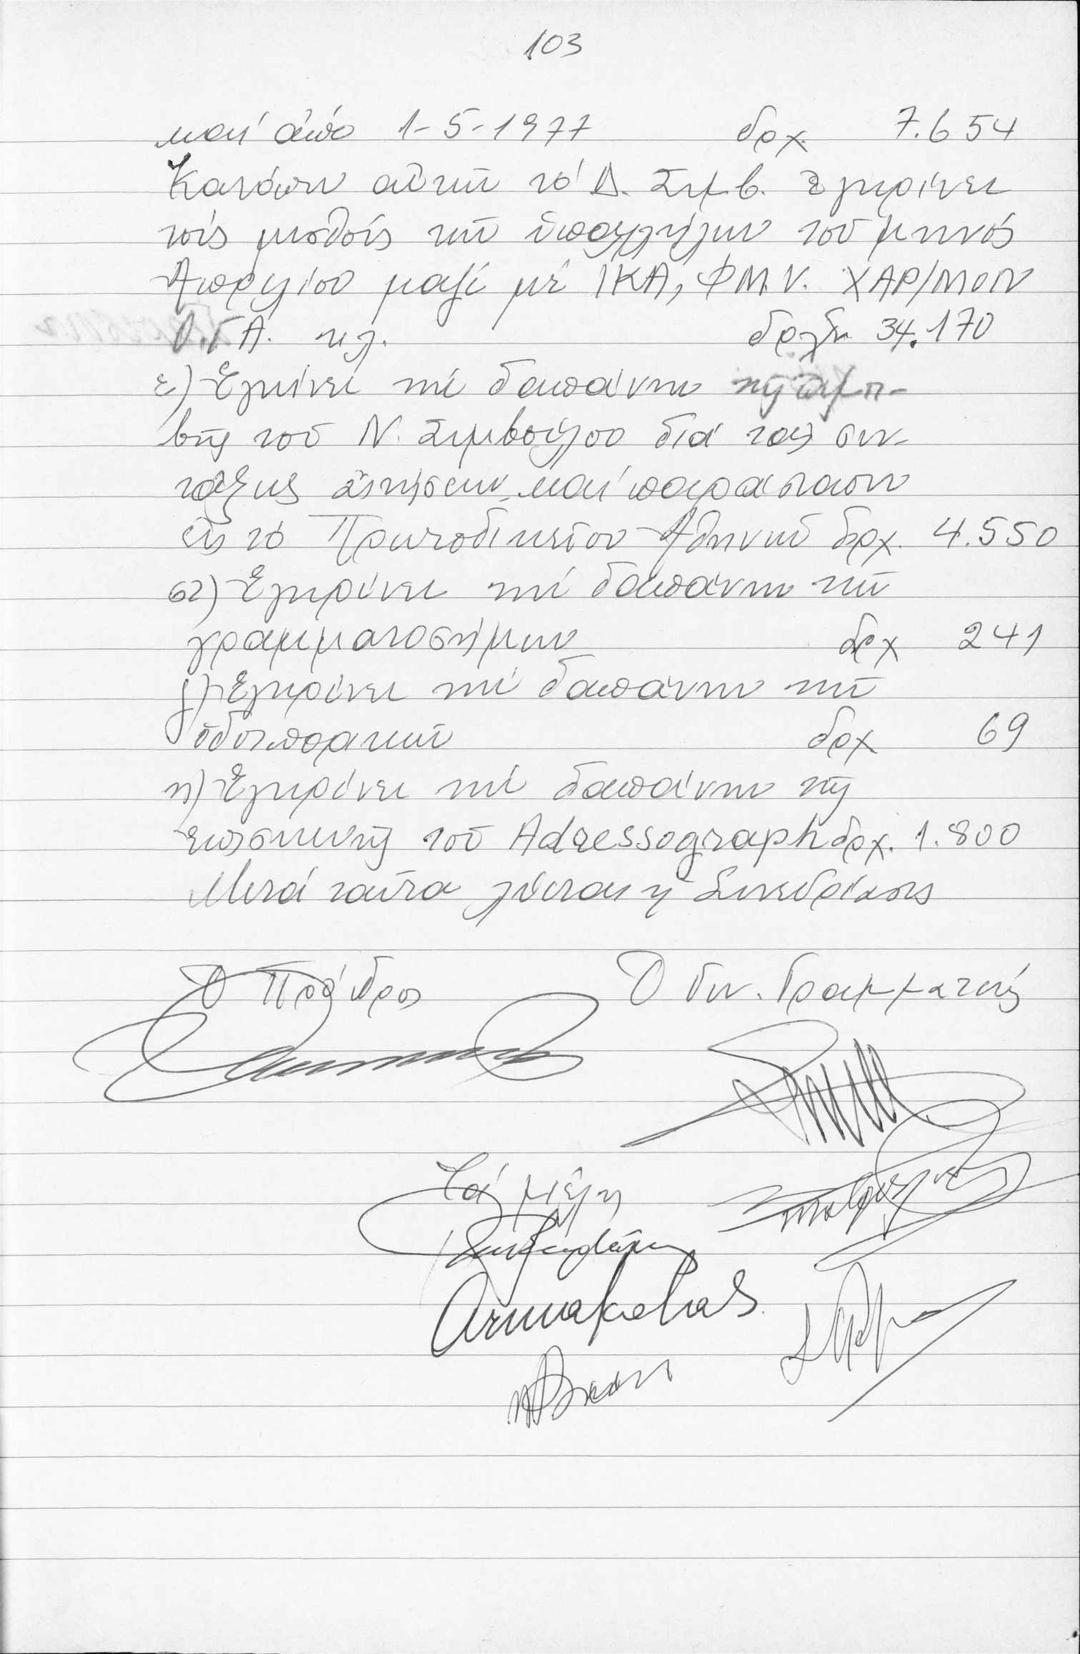 103
καί ἀπό 1-5-1977 δρχ. 7.654
Κατόπιν αὐτῶν τό Δ. Συμβ. Ἐγκρίνει
τούς μισθούς τῶν ὑπαλλήλων τοῦ μηνός
Ἀπριλίου μαζί μέ ΙΚΑ, ΦΜΥ. ΧΑΡ/ΜΟΝ
Ο.Γ.Α. κλ. δρχ. 34.170
ε) Ἐγκρίνει τήν δαπάνην τῆς ἀμοι-
βῆς τοῦ Ν. Συμβούλου διά τάς συν-
τάξεις αἰτήσεων, καί παράστασιν
εἰς τό Πρωτοδικεῖον Ἀθηνῶν δρχ. 4.550
στ) Ἐγκρίνει τήν δαπάνην τῶν
γραμματοσήμων δρχ 241
ζ) Ἐγκρίνει τήν δαπάνην τῶν
ὁδοιπορικῶν δρχ 69
η) Ἐγκρίνει τήν δαπάνην τῆς
ἐπισκευῆς τοῦ Adressograph δρχ. 1.800
Μετά ταῦτα λύεται ἡ Συνεδρίασις
Ὁ Πρόεδρος Ὁ Γεν. Γραμματεύς
Τά μέλη